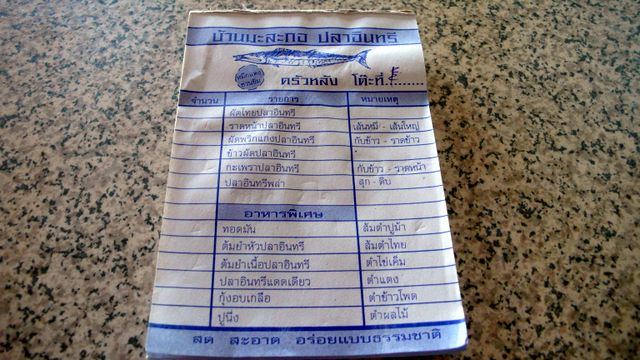 บ้านมะละกอ ปลาอินทรี
ครัวหลัง โต๊ะที่ ........
จำนวน รายการ หมายเหตุ
ผัดไทยปลาอินทรี
ราดหน้าปลาอินทรี เส้นหมี่ - เส้นใหญ่
ผัดพริกแกงปลาอินทรี กับข้าว - ราดข้าว
ข้าวผัดปลาอินทรี
กะเพราปลาอินทรี กับข้าว - ราดหน้า
ปลาอินทรีพล่า สุก - ดิบ
อาหารพิเศษ
ทอดมัน ส้มตำปูม้า
ต้มยำหัวปลาอินทรี ส้มตำไทย
ต้มยำเนื้อปลาอินทรี ตำไข่เค็ม
ปลาอินทรีแดดเดียว ตำแตง
กุ้งอบเกลือ ตำข้าวโพด
ปูนึ่ง ตำผลไม้
สด สะอาด อร่อยแบบธรรมชาติ